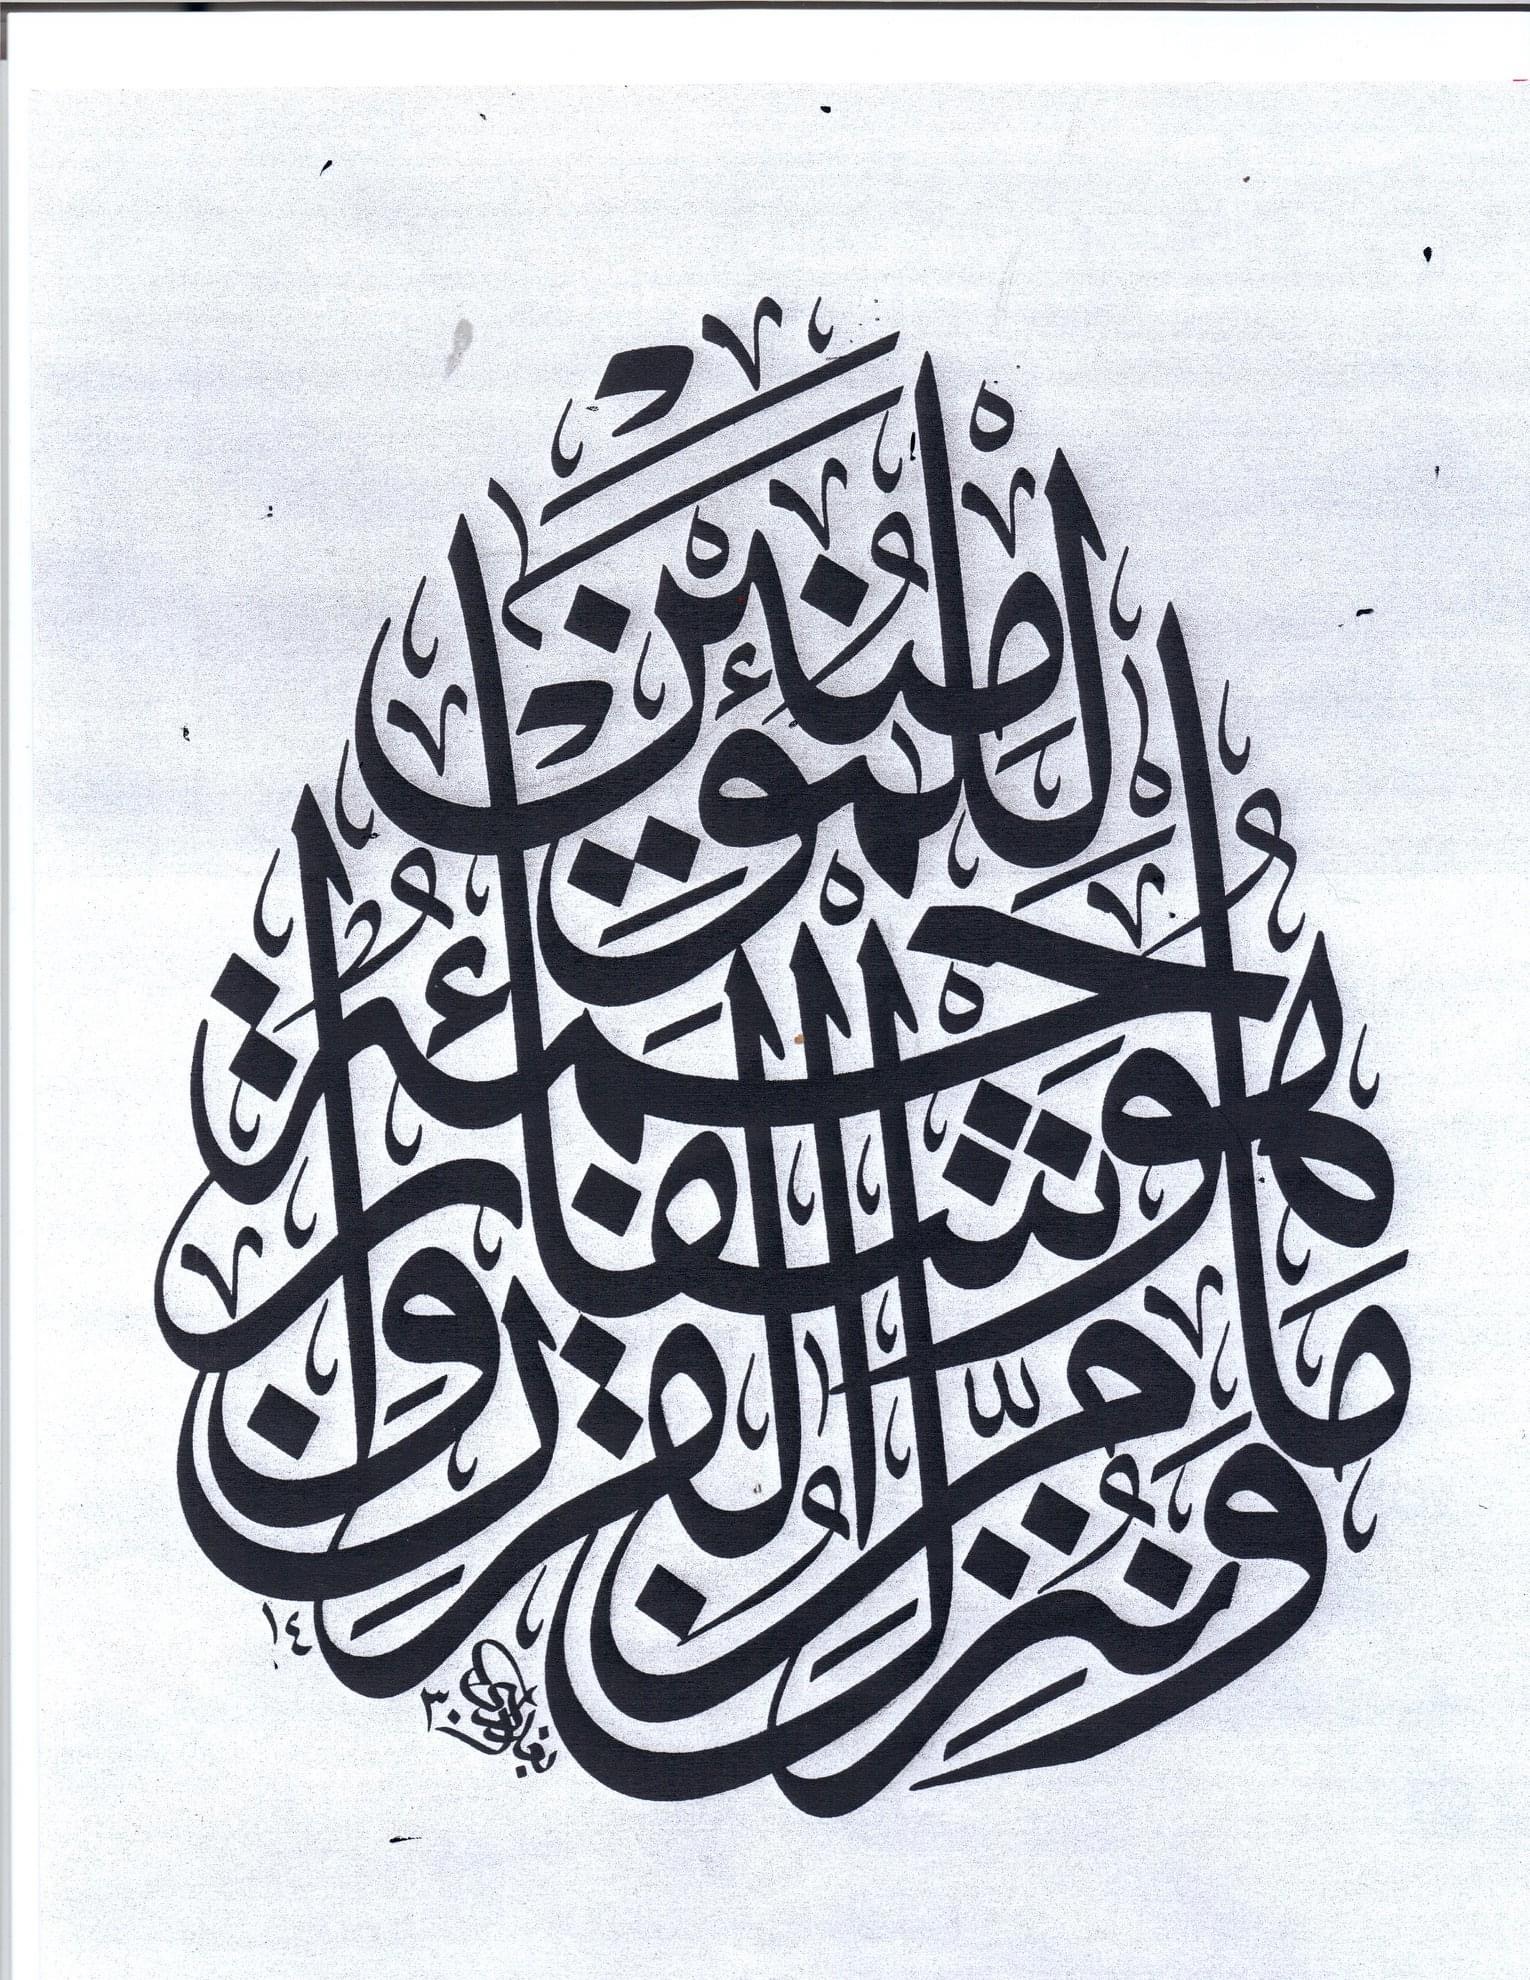 وَنُنَزِّلُ مِنَ الْقُرْآنِ
مَا هُوَ شِفَاءٌ وَرَحْمَةٌ
لِلْمُؤْمِنِينَ
١٤٣٠